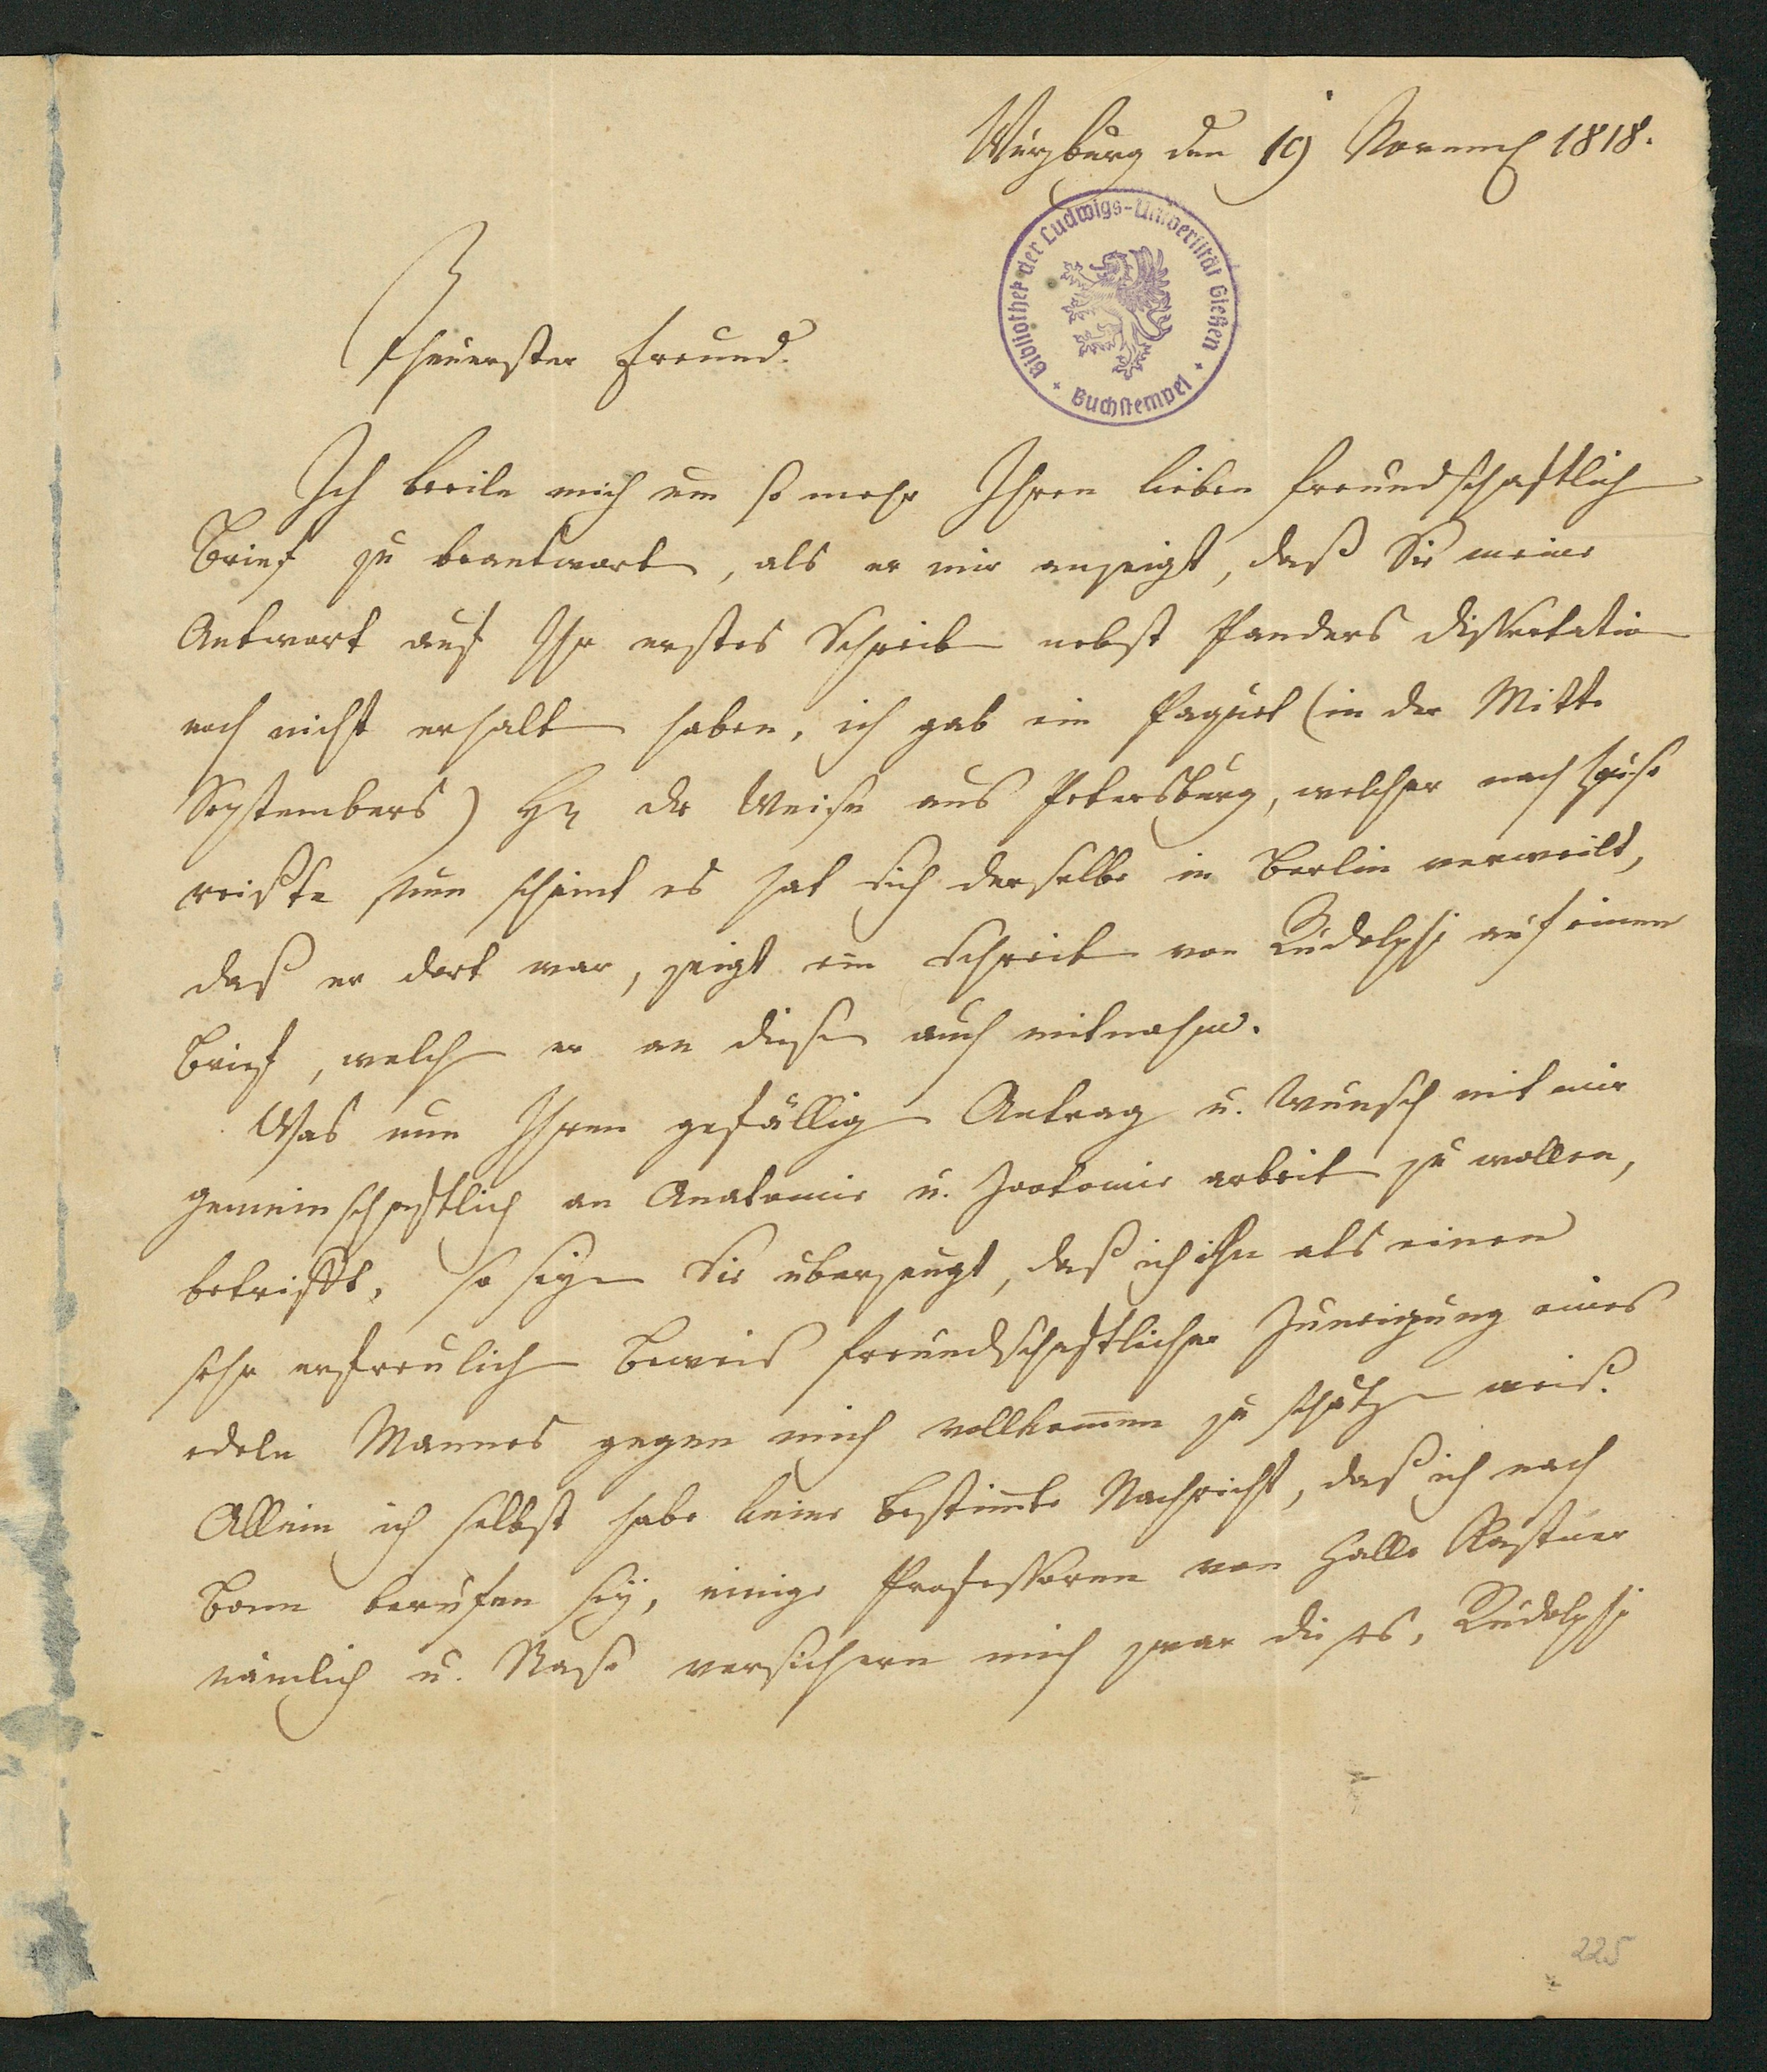 Würzburg den 19 Novemb 1818.
Bibliothek der Ludwigs-Universität Gießen
Buchstempel
Theuerster Freund.
Ich beeile mich um so mehr Ihren lieben freundschaftlichen
Brief zu beantworten, als er mir anzeigt, daß Sie meine
Antwort auf Ihr erstes Schreiben nebst Panders Dissertation
noch nicht erhalten haben, ich gab ein Paquet (in der Mitte
Septembers) Hr Dr Weise aus Petersburg, welcher nach
reißte nun scheint es hat sich derselbe in Berlin verweilt,
daß er dort war, zeigt ein Schreiben von Rudolphi auf einen
Brief, welchen er an diesen auch mitnahm.
Was nun Ihren gefälligen Antrag u. Wunsch mit mir
gemeinschaftlich an Anatomie u. Zootomie arbeiten zu wollen,
betrifft, so seyen Sie überzeugt, daß ich ihn als einen
sehr erfreulichen Beweis freundschaftlicher Zuneigung eines
edeln Mannes gegen mich vollkom̅en zu schätzen weiß.
Allein ich selbst habe keine bestim̅te Nachricht, daß ich nach
Bonn berufen sey, einige Professoren von Halle Kastner
nämlich u. Nasse versichern mich zwar dieses, Rudolphi
225